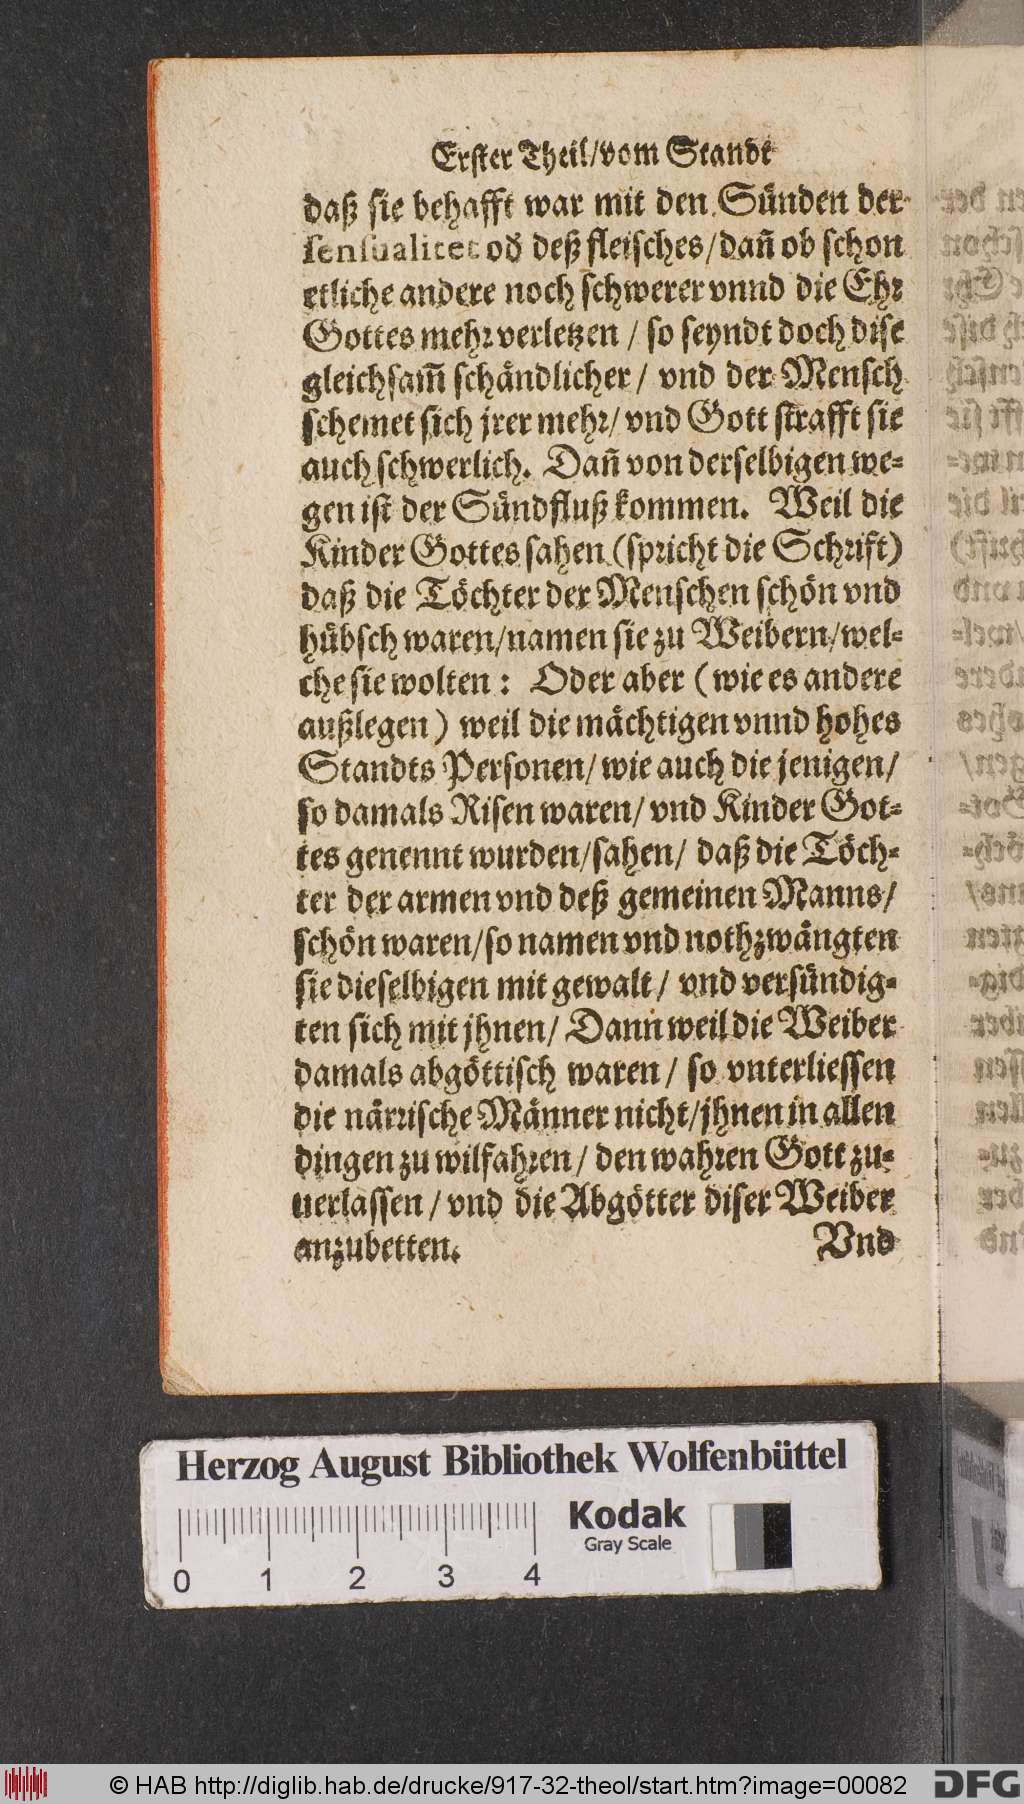 Erster Theil/vom Standt
daß sie behafft war mit den Sünden der
sensualitet oð deß fleisches/dañ ob schon
etliche andere noch schwerer vnnd die Ehr
Gottes mehr verletzen / so seyndt doch dise
gleichsam̃ schändlicher / vnd der Mensch
schemet sich jrer mehr/ vnd Gott strafft sie
auch schwerlich. Dañ von derselbigen we-
gen ist der Sündfluß kommen. Weil die
Kinder Gottes sahen (spricht die Schrift)
daß die Töchter der Menschen schön vnd
hübsch waren/namen sie zu Weibern/wel-
che sie wolten : Oder aber ( wie es andere
außlegen ) weil die mächtigen vnnd hohes
Standts Personen/ wie auch die jenigen/
so damals Risen waren/ vnd Kinder Got-
tes genennt wurden/sahen/ daß die Töch-
ter der armen vnd deß gemeinen Manns/
schön waren/so namen vnd nothzwängten
sie dieselbigen mit gewalt / vnd versündig-
ten sich mit jhnen/ Dann weil die Weiber
damals abgöttisch waren / so vnterliessen
die närrische Männer nicht/jhnen in allen
dingen zu wilfahren / den wahren Gott zu-
uerlassen / vnd die Abgötter diser Weiber
anzubetten. Vnd
Herzog August Bibliothek Wolfenbüttel
Kodak
Gray Scale
0 1 2 3 4
© HAB http://diglib.hab.de/drucke/917-32-theol/start.htm?image=00082
DFG